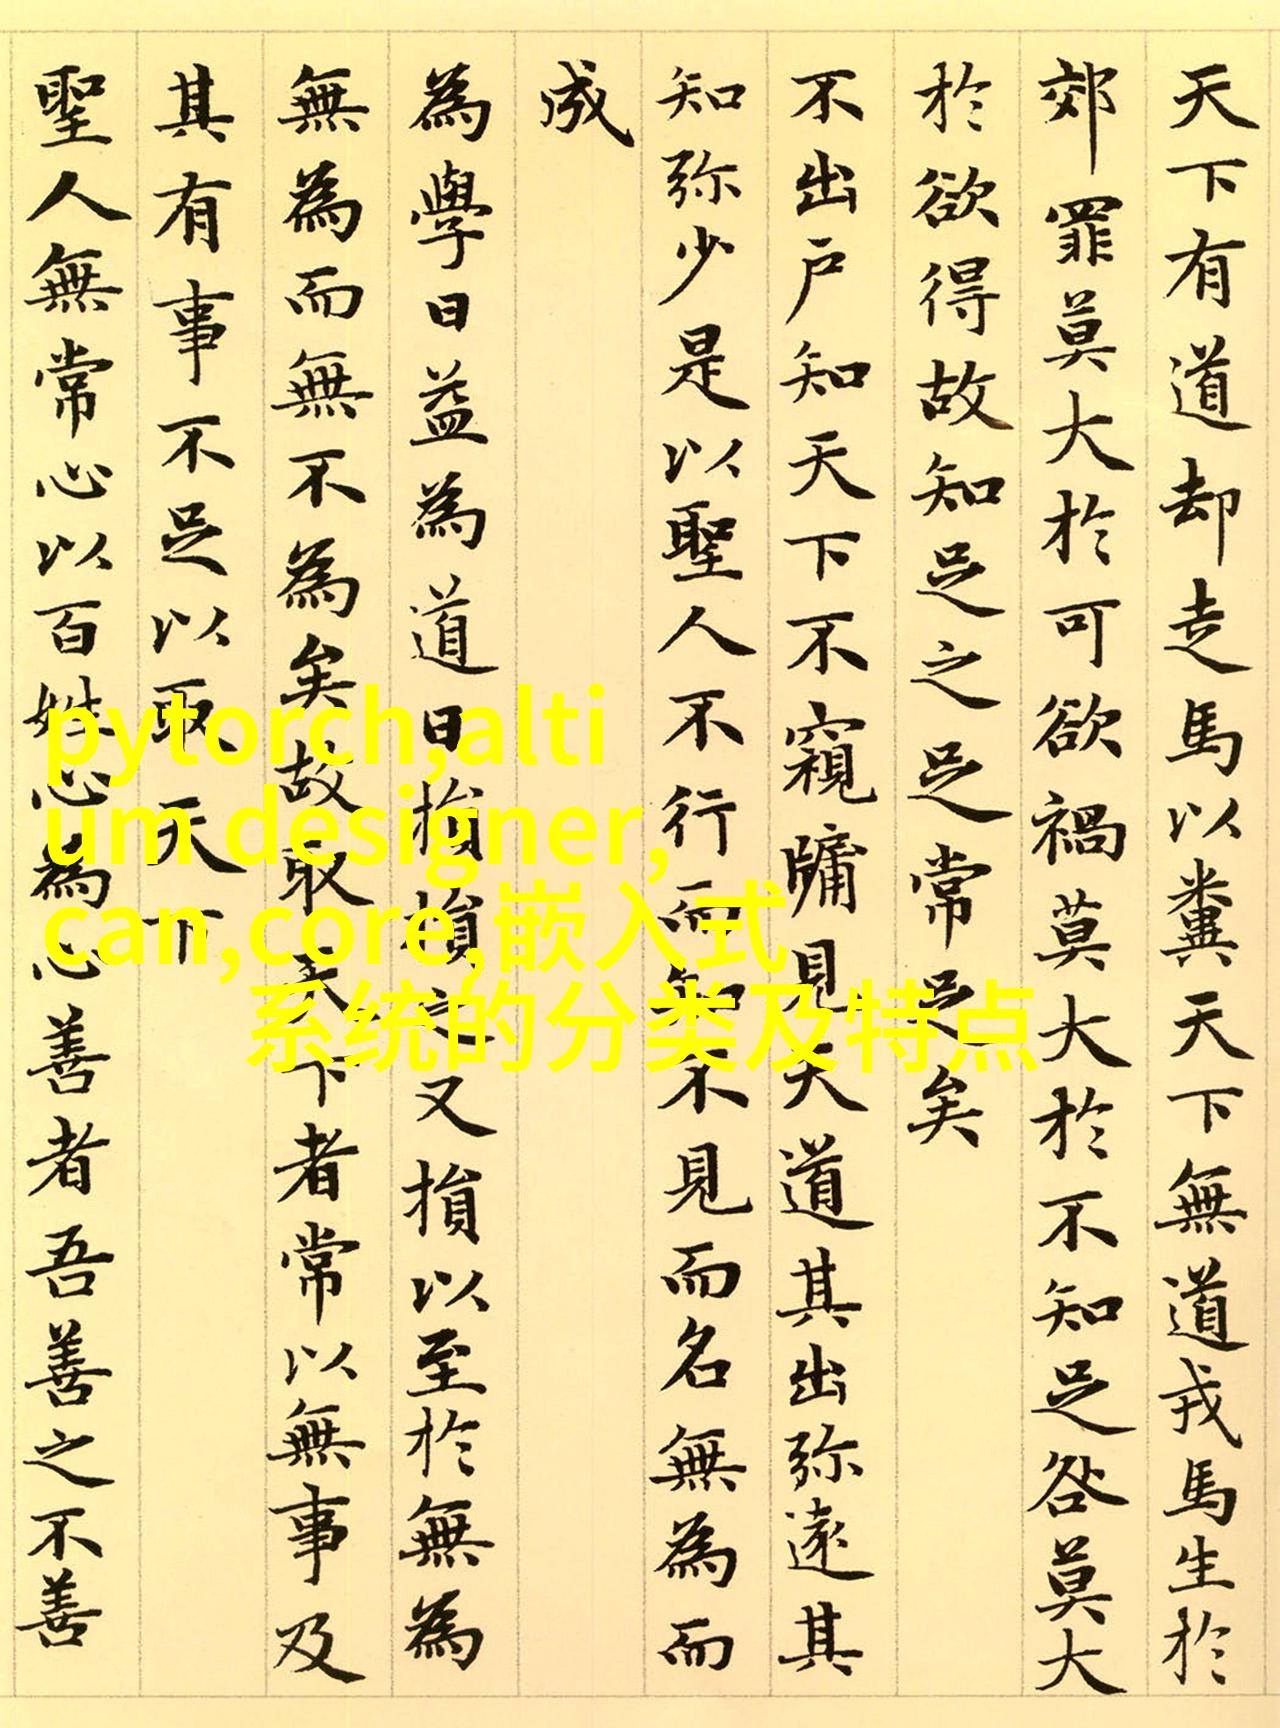 天下有道却走馬以糞天下無道戎馬生於
郊罪莫大於可欲禍莫大於不知足咎莫大
於欲得故知足之足常足矣
不出戶知天下不窺牖見天道其出弥遠其
知弥少是以聖人不行而知不見而名無為而
成
為學日益為道日損損之又損以至於無為
無為而無不為矣故取天下者常以無事及
其有事不足以取天下
聖人無常心以百姓心為心善者吾善之不善
pytorch,alti
um designer,
can,core,嵌入式
系统的分类及特点